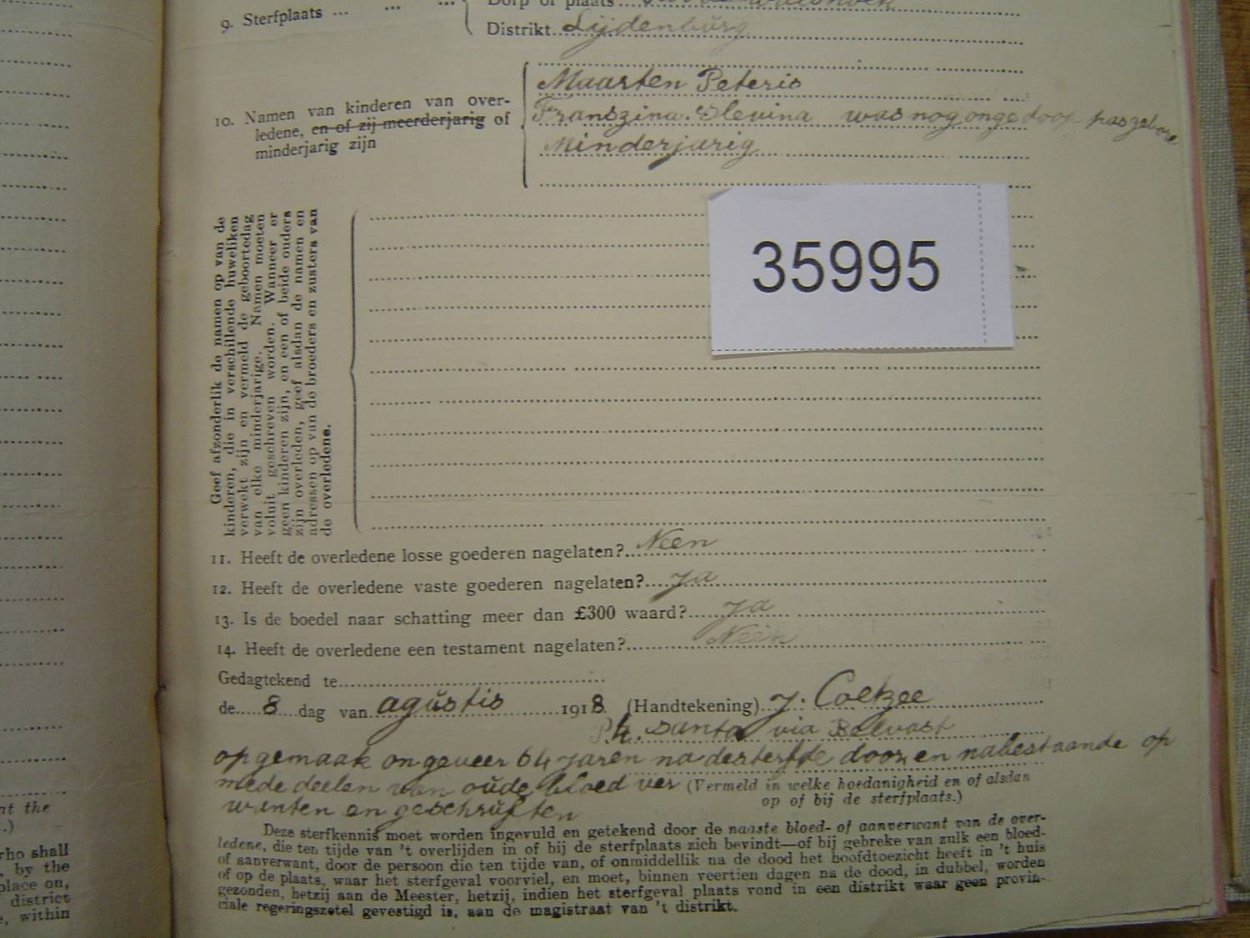 9. Sterfplaats ... ... ... Dorp of plaats
Distrikt Lijdenburg
10. Namen van kinderen van over-
ledene, en of zij meerderjarig of
minderjarig zijn
Maarten Peteris
Franszina Slevina was nog ongedoop
Minderjarig
35995
Geef afzonderlik de namen op van de
kinderen, die in verschillende huweliken
verwekt zijn en vermeld de geboortedag
van elke minderjarige. Namen moeten
voluit geschreven worden. Wanneer er
geen kinderen zijn, en een of beide ouders
zijn overleden, geef alsdan de namen en
adressen op van de broeders en zusters van
de overledene.
11. Heeft de overledene losse goederen nagelaten? Neen
12. Heeft de overledene vaste goederen nagelaten? Ja
13. Is de boedel naar schatting meer dan £300 waard? Ja
14. Heeft de overledene een testament nagelaten? Neen
Gedagtekend te
de 8 dag van agustis 1918 (Handtekening) J. Coetzee
santa via Belvast
opgemaak ongeveer 64 jaren na dersterfte door en nabestaande op
mede deelen van oude bloed ver (Vermeld in welke hoedanigheid en of alsdan
op of bij de sterfplaats.)
wanten en geschriften
Deze sterfkennis moet worden ingevuld en getekend door de naaste bloed- of aanverwant van de over-
ledene, die ten tijde van 't overlijden in of bij de sterfplaats zich bevindt—of bij gebreke van zulk een bloed-
of aanverwant, door de persoon die ten tijde van, of onmiddellik na de dood het hoofdtoezicht heeft in 't huis
of op de plaats, waar het sterfgeval voorviel, en moet, binnen veertien dagen na de dood, in dubbel, worden
gezonden, hetzij aan de Meester, hetzij, indien het sterfgeval plaats vond in een distrikt waar geen provin-
ciale regeringszetel gevestigd is, aan de magistraat van 't distrikt.
nt the
.)
who shall
, by the
place on,
district
e, within